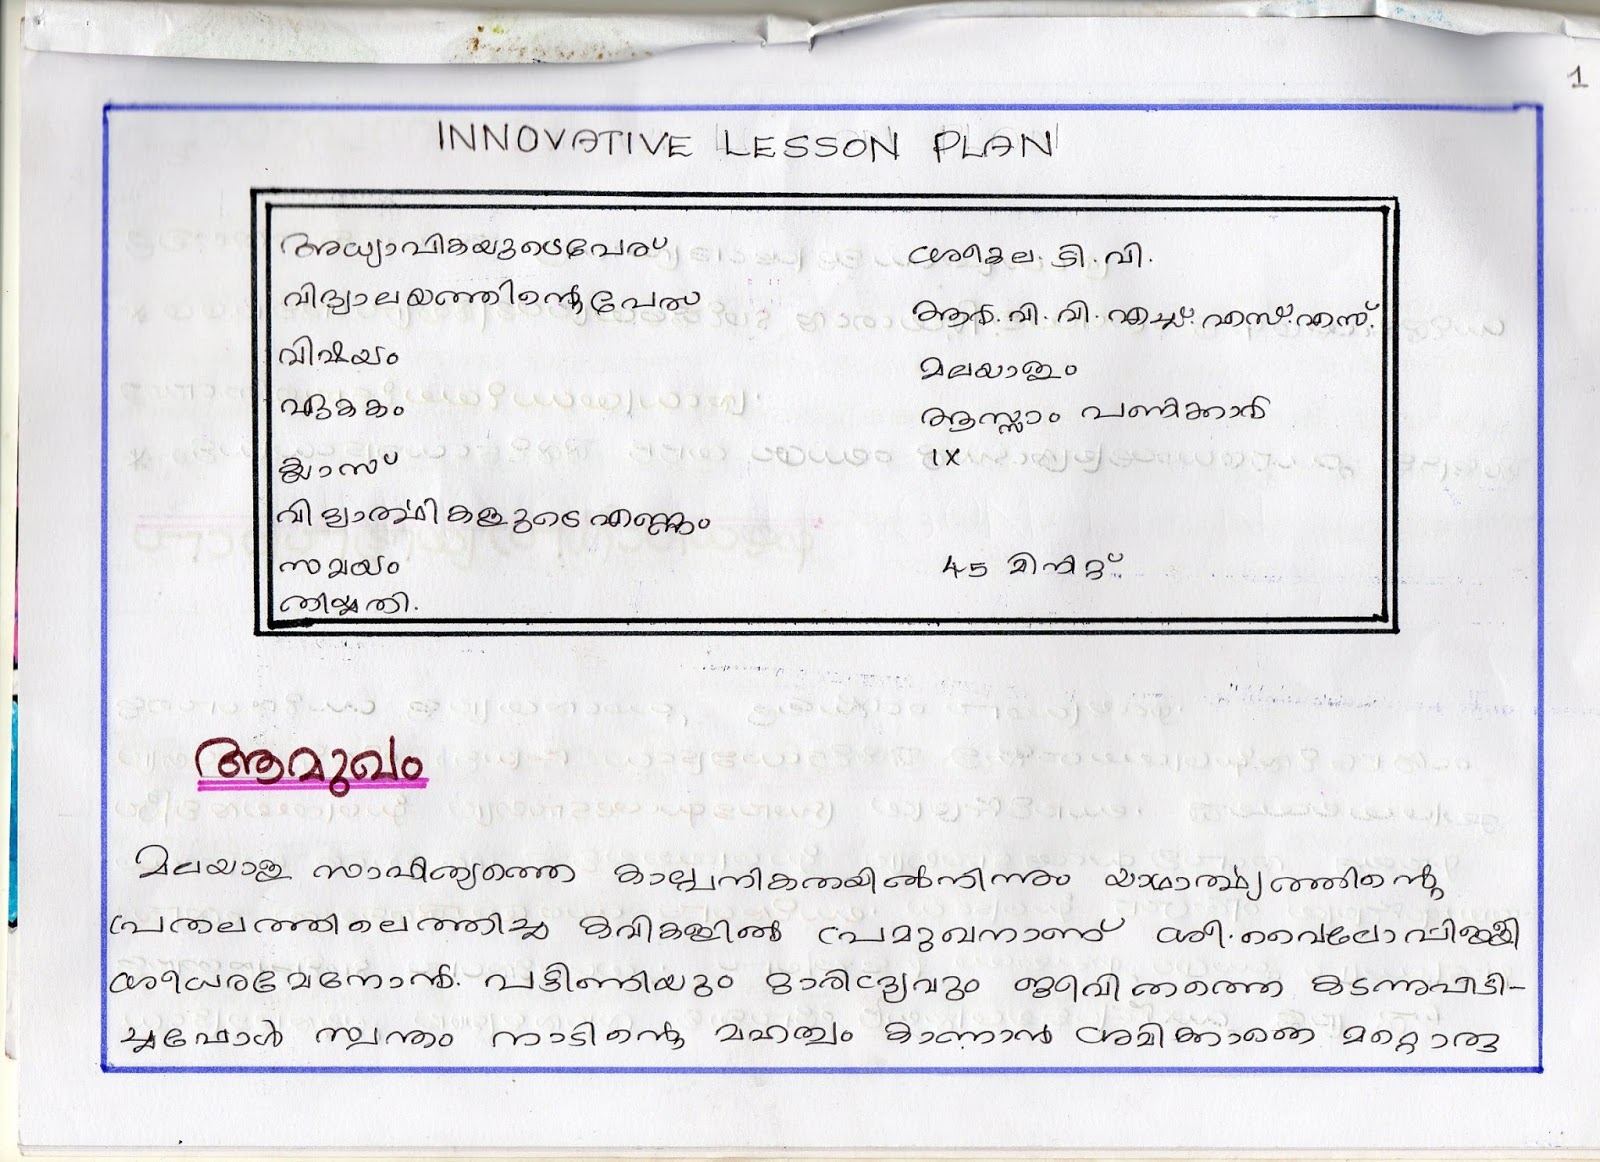 1
INNOVATIVE LESSON PLAN
അധ്യാപികയുടെപേര് ശ്രീകല. ടി. വി.
വിദ്യാലയത്തിന്റെപേര് ആർ. വി. വി. എച്ച്. എസ്. എസ്.
വിഷയം മലയാളം
ഏകകം ആസ്സാം പണിക്കാർ
ക്ലാസ് IX
വിദ്യാർത്ഥികളുടെ എണ്ണം
സമയം 45 മിനിറ്റ്
തിയ്യതി.
ആമുഖം
മലയാള സാഹിത്യത്തെ കാല്പനികതയിൽനിന്നും യാഥാർത്ഥ്യത്തിന്റെ
പ്രതലത്തിലെത്തിച്ച കവികളിൽ പ്രമുഖനാണ് ശ്രീ. വൈലോപ്പിള്ളി
ശ്രീധരമേനോൻ. പട്ടിണിയും ദാരിദ്ര്യവും ജീവിതത്തെ കടന്നുപിടി-
ച്ചപ്പോൾ സ്വന്തം നാടിന്റെ മഹത്വം കാണാൻ ശ്രമിക്കാതെ മറ്റൊരു